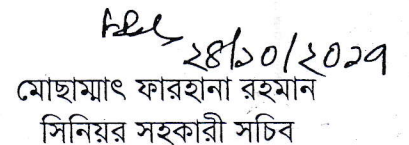 ২৪/১০/২০১৭
মোছাম্মাৎ ফারহানা রহমান
সিনিয়র সহকারী সচিব